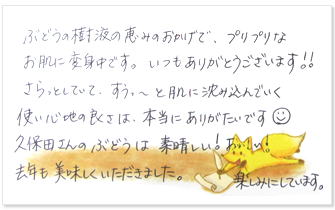 ぶどうの樹液の恵みのおかげで、プリプリな
お肌に変身中です。いつもありがとうございます!!
さらっとしていて、すぅ〜と肌に沈み込んでいく
使い心地の良さは、本当にありがたいです☺
久保田さんのぶどうは素晴しい!おいしい!
去年も美味しくいただきました。 楽しみにしています。